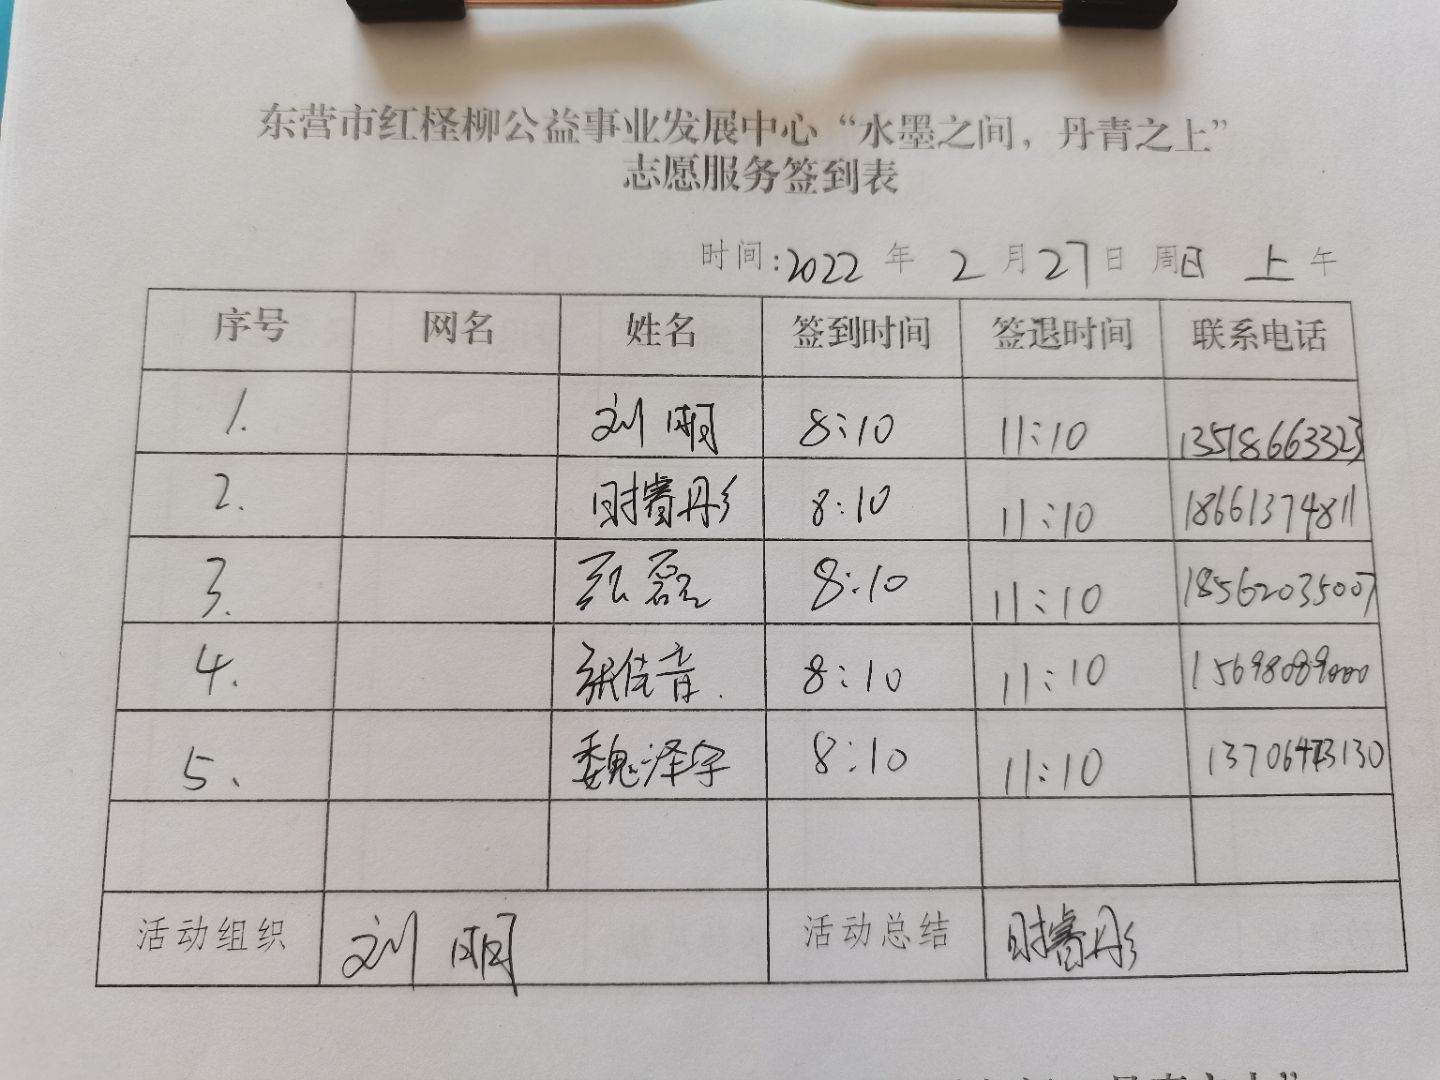 东营市红柽柳公益事业发展中心“水墨之间，丹青之上”
志愿服务签到表
时间:2022 年 2 月 27 日 周日 上 午
序号 网名 姓名 签到时间 签退时间 联系电话
1. 刘明 8:10 11:10 13518663323
2. 时睿彤 8:10 11:10 18661374811
3. 张磊 8:10 11:10 18562035007
4. 张佳音. 8:10 11:10 15698089000
5. 魏泽宇 8:10 11:10
活动组织 刘明 活动总结 时睿彤